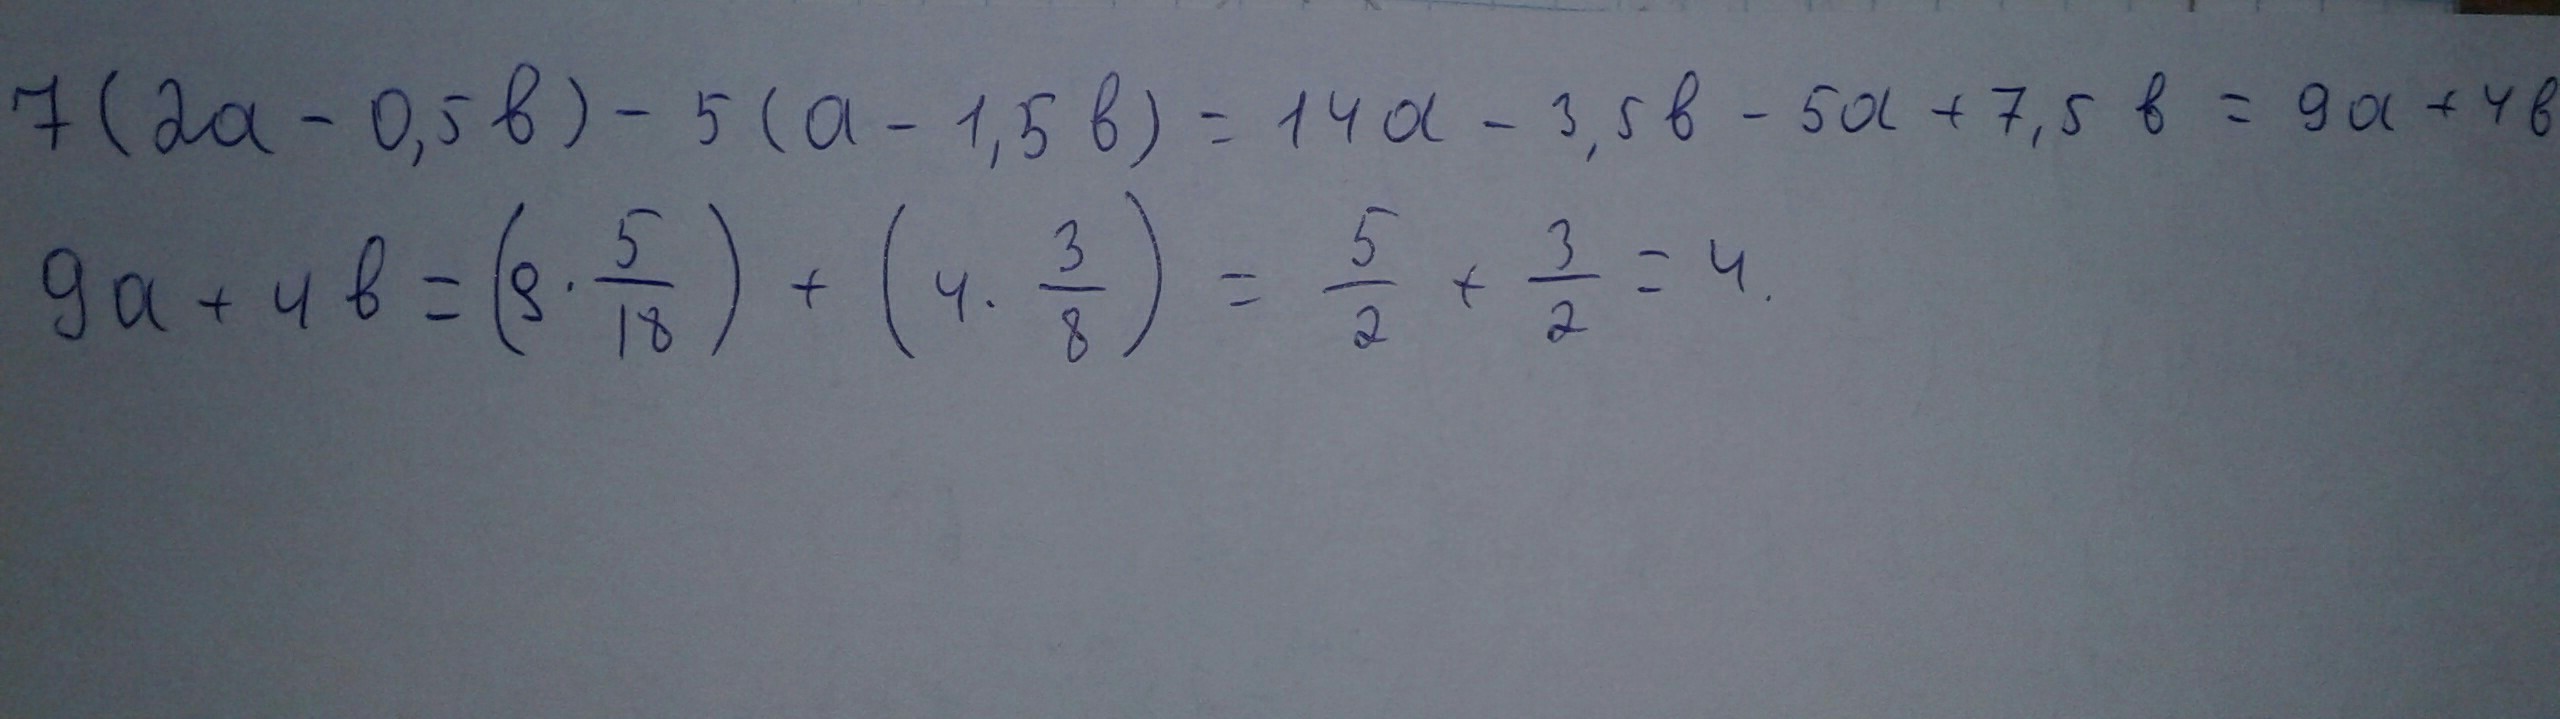 7(2a - 0,5в) - 5(a - 1,5в) = 14a - 3,5в - 5a + 7,5в = 9a + 4в
9a + 4в = (9 · 5/18) + (4 · 3/8) = 5/2 + 3/2 = 4.